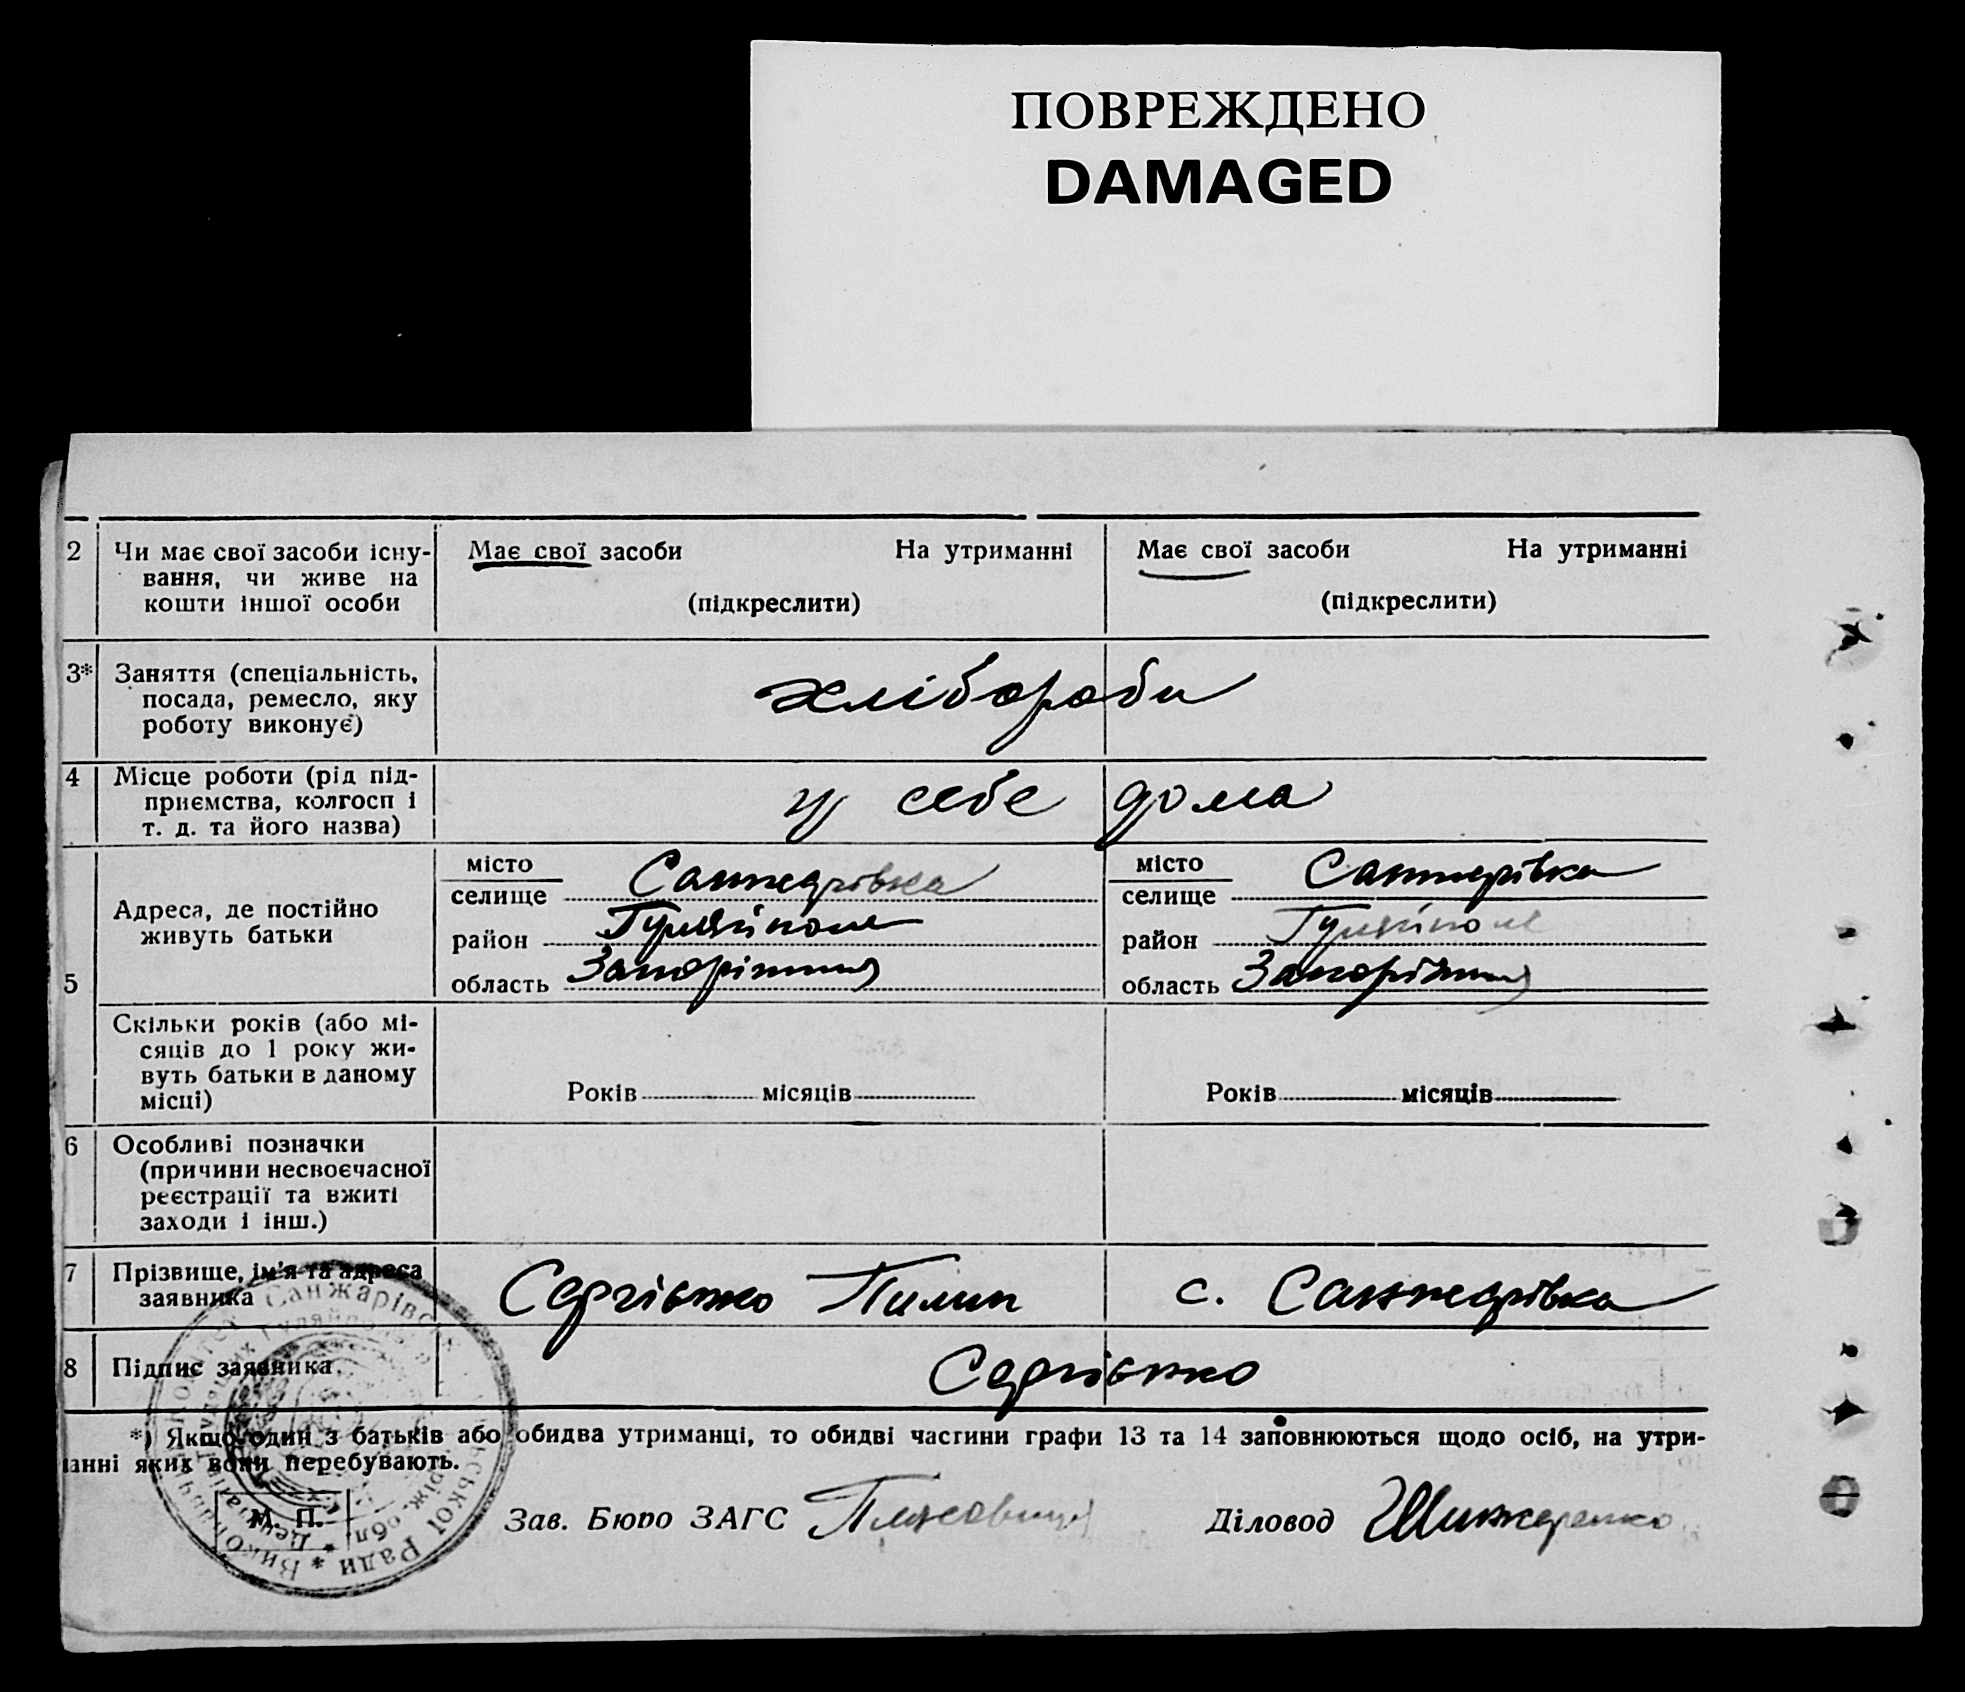 ПОВРЕЖДЕНО
DAMAGED
2 Чи має свої засоби існу-
вання, чи живе на
кошти іншої особи
Має свої засоби На утриманні
(підкреслити)
Має свої засоби На утриманні
(підкреслити)
3* Заняття (спеціальність,
посада, ремесло, яку
роботу виконує)
хлібороби
4 Місце роботи (рід під-
приємства, колгосп і
т. д. та його назва)
у себе дома
5 Адреса, де постійно
живуть батьки
місто
селище Санжарівка
район Гуляйполе
область Запоріжжя
місто
селище Санжарівка
район Гуляйполе
область Запоріжжя
Скільки років (або мі-
сяців до 1 року жи-
вуть батьки в даному
місці)
Років місяців
Років місяців
6 Особливі позначки
(причини несвоєчасної
реєстрації та вжиті
заходи і інш.)
7 Прізвище, ім'я та адреса
заявника
Сергієнко Пилип с. Санжарівка
8 Підпис заявника
Сергієнко
*) Якщо один з батьків або обидва утриманці, то обидві частини графи 13 та 14 заповнюються щодо осіб, на утри-
анні яких вони перебувають.
М. П.
Зав. Бюро ЗАГС
Діловод
Ради * Викон